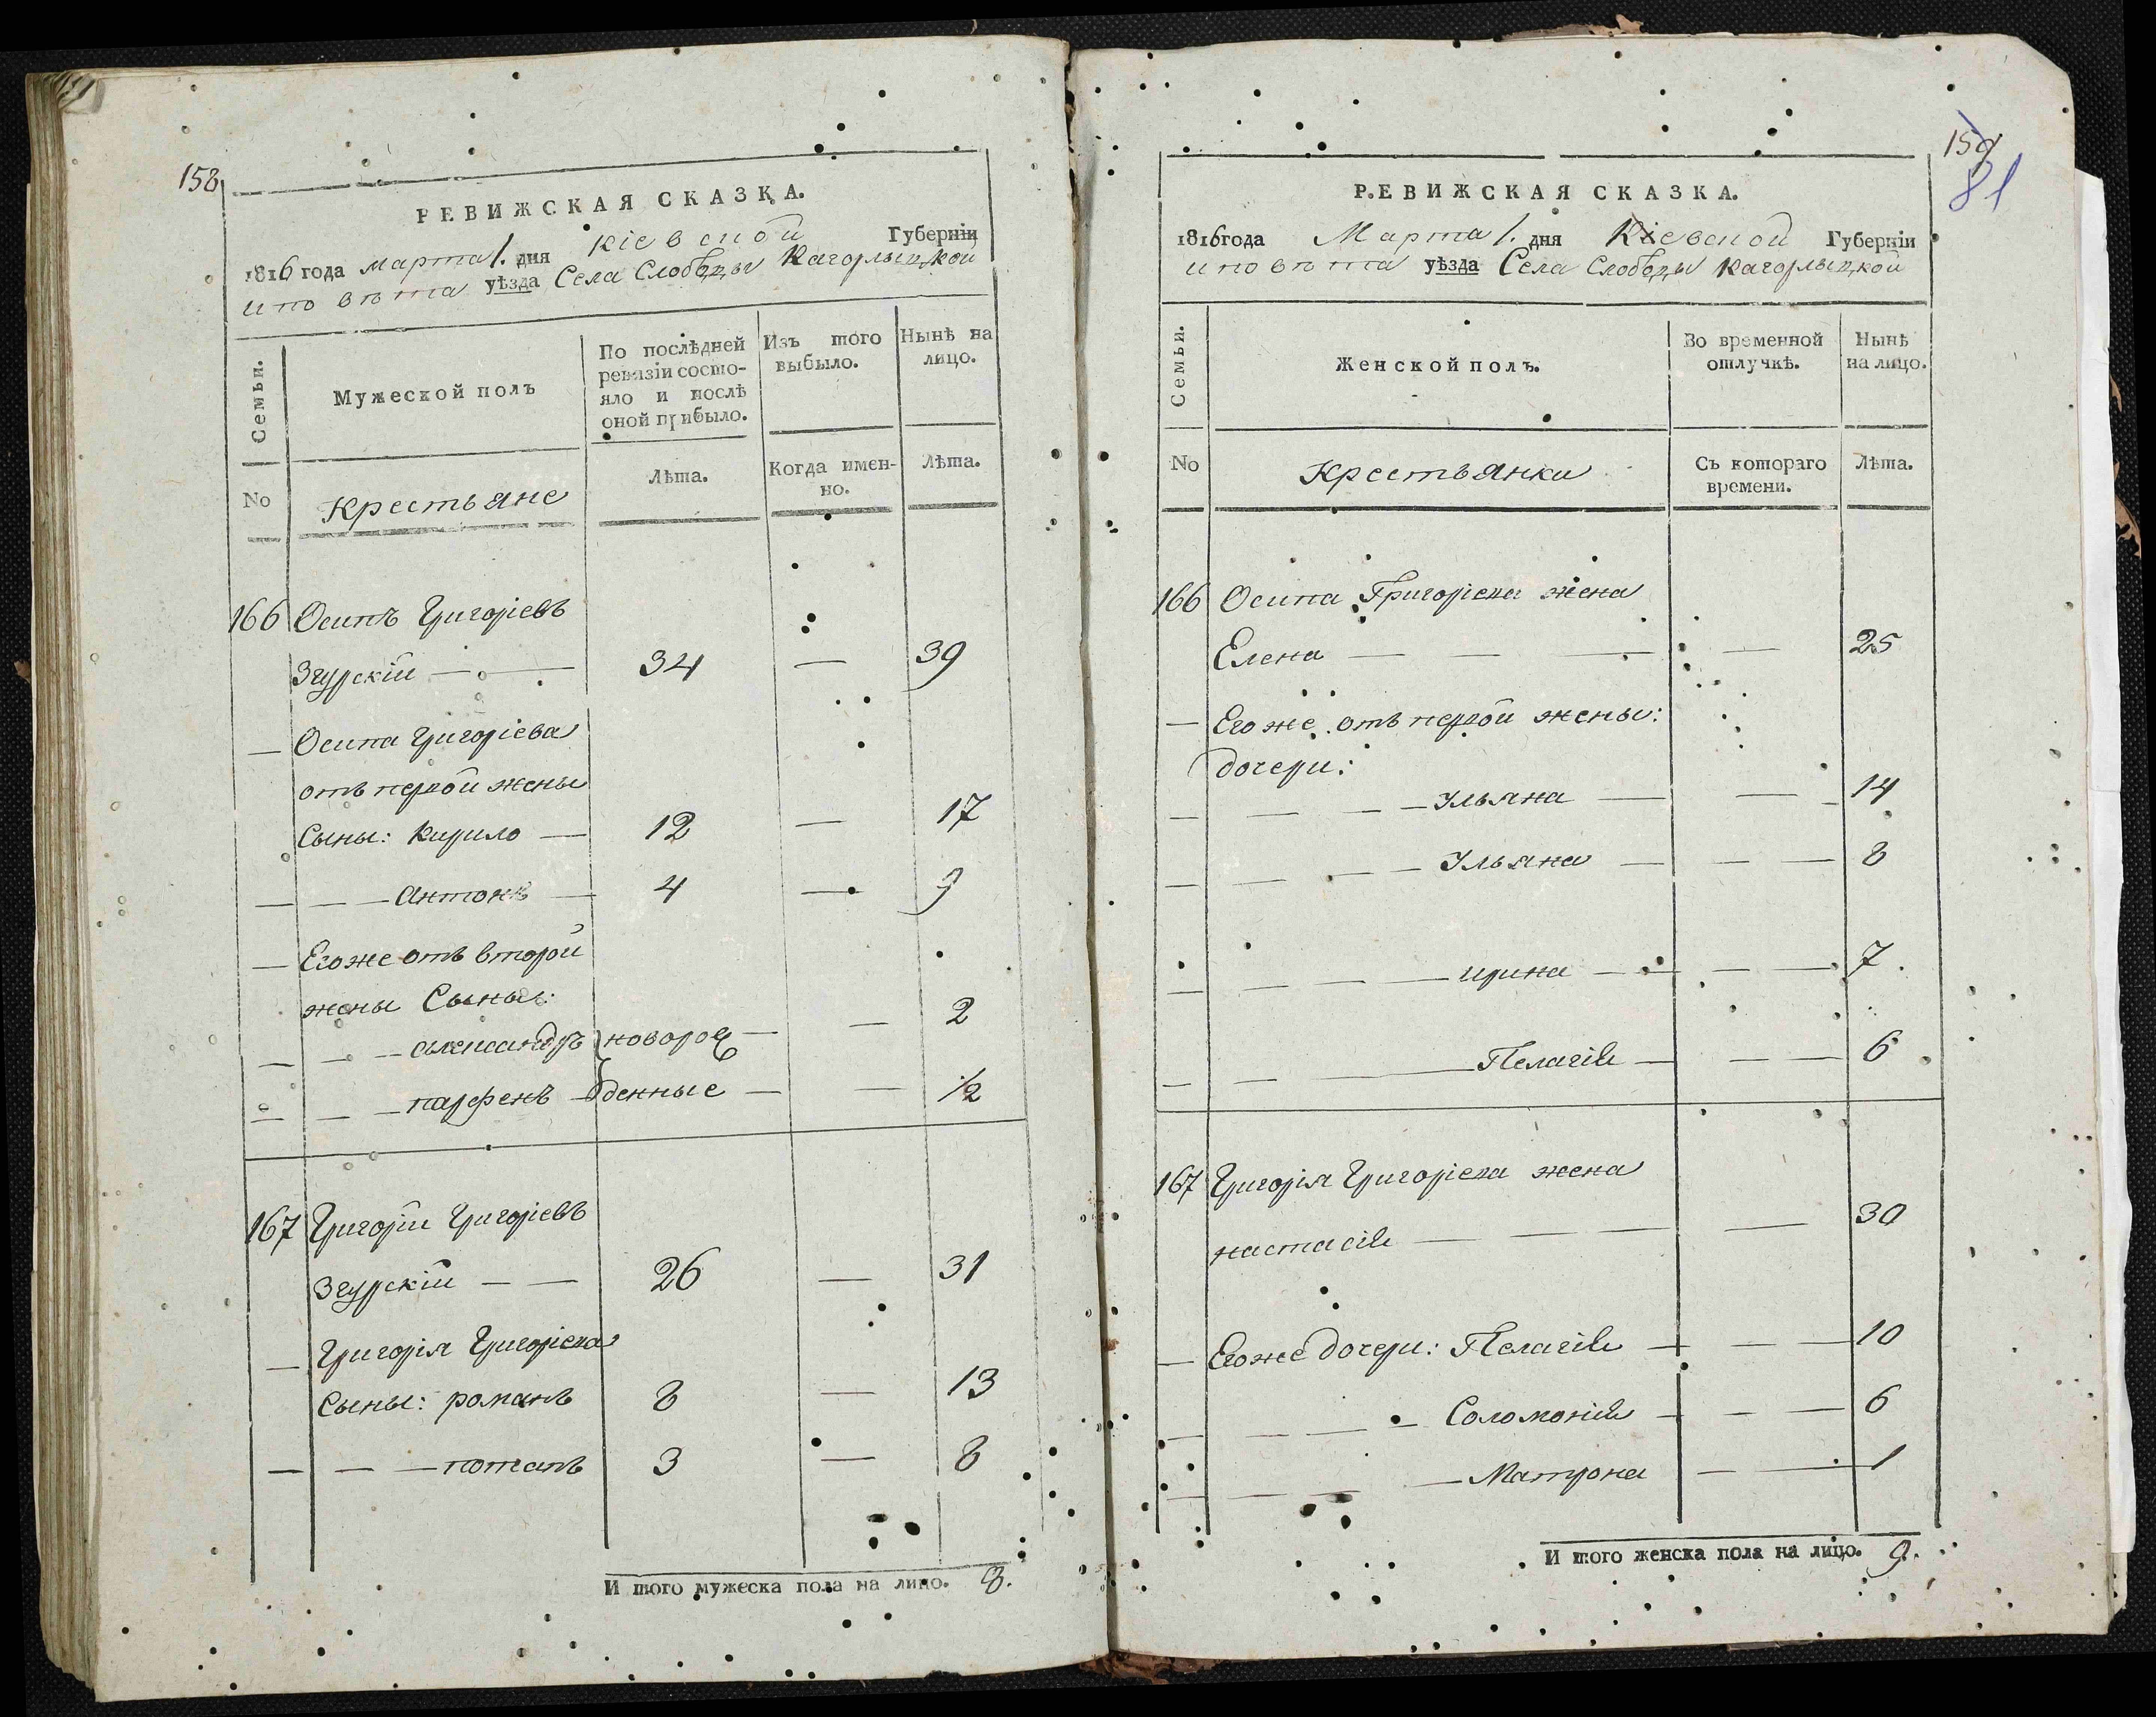 158
РЕВИЖСКАЯ СКАЗКА.
1816 года марта 1. дня Кіевской Губерніи
и повѣта уѣзда Села Слободы Кагорлыцкой
Семьи.
Мужеской полъ
По послѣдней
ревизіи состо-
яло и послѣ
оной прибыло.
Изъ того
выбыло.
Нынѣ на
лицо.
No
Крестьяне
Лѣта.
Когда имен-
но.
Лѣта.
166 Осипъ Григоріевъ
Згурскій — — 34 — 39
— Осипа Григоріева
отъ первой жены
Сыны: Кирило — 12 — 17
— — — Антонъ — 4 — 9
— Егоже отъ второй
жены Сыны:
— — — александръ новорож — — 2
— — — парфенъ — денные — — 1/2
167 Григорій Григоріевъ
Згурскій — — 26 — 31
— Григорія Григоріева
Сыны: романъ 8 — 13
— — — потапъ 3 — 8
И того мужеска пола на лицо. 8.
159
81
РЕВИЖСКАЯ СКАЗКА.
1816 года Марта 1. дня Кіевской Губерніи
и повѣта уѣзда Села Слободы Кагорлыцкой
Семьи.
Женской полъ.
Во временной
отлучкѣ.
Нынѣ
на лицо.
No
Крестьянки
Съ котораго
времени.
Лѣта.
166 Осипа Григоріева жена
Елена — — — — 25
— Егоже отъ первой жены:
дочери:
— — — — Ульяна — — — 14
— — — — Ульяна — — — 8
— — — — ирина — — — 7.
— — — Пелагія — — — 6
167 Григорія Григоріева жена
настасія — — — — 30
— Егоже дочери: Пелагія — — — 10
— — — — Соломонія — — — 6
— — — — Матрона — — 1
И того женска пола на лицо. 9.